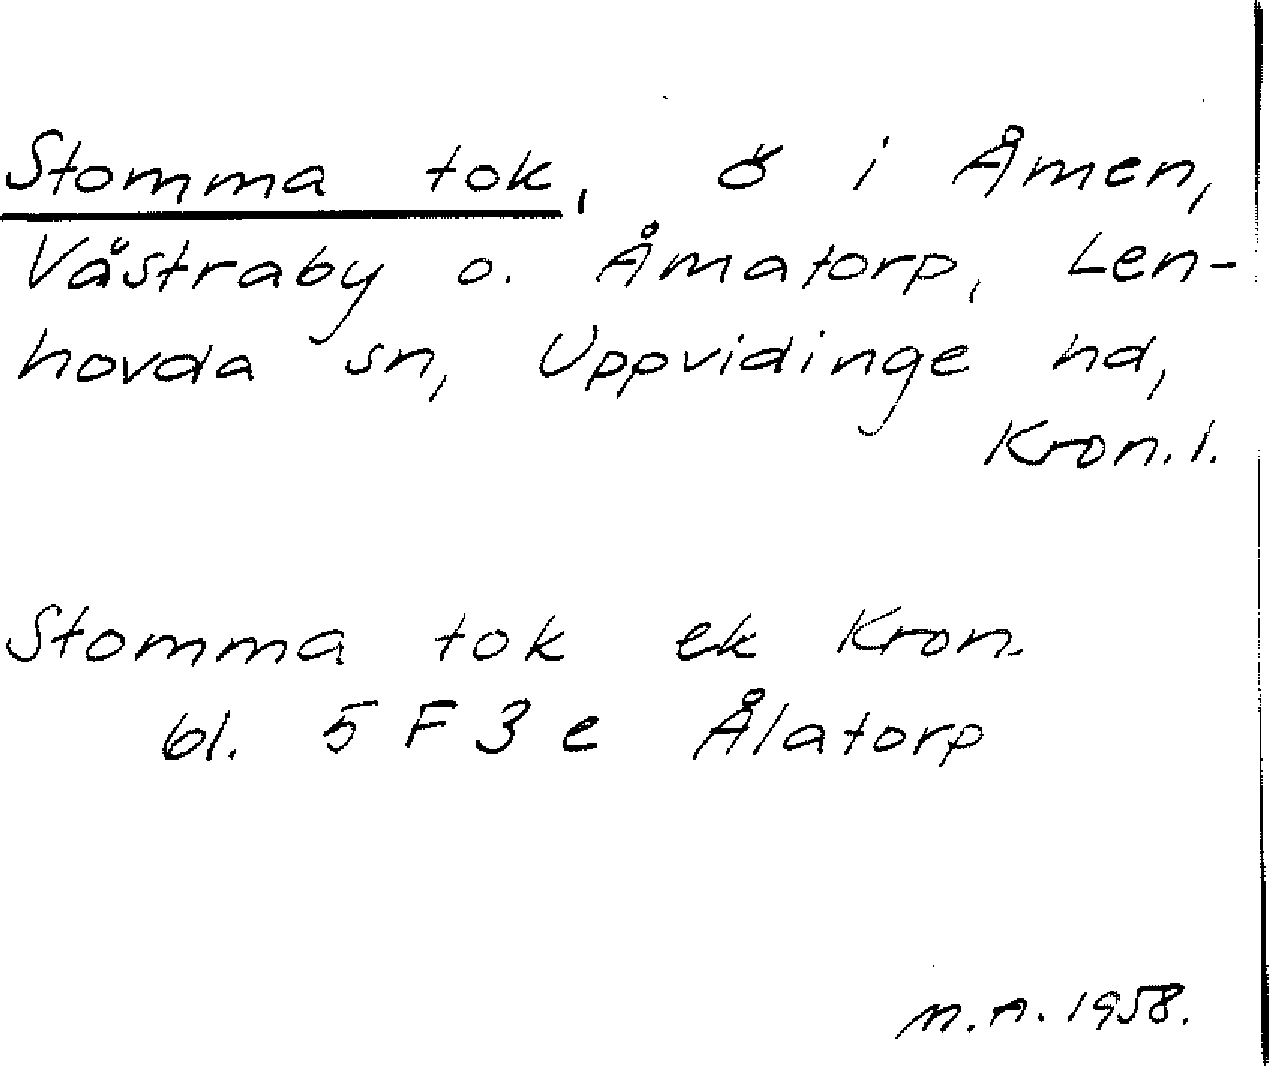 Stomma tok, ö i Åmen,
Västraby o. Åmatorp, Len-
hovda sn, Uppvidinge hd,
Kron. l.
Stomma tok ek Kron.
bl. 5 F 3 e Ålatorp
M.A. 1958.